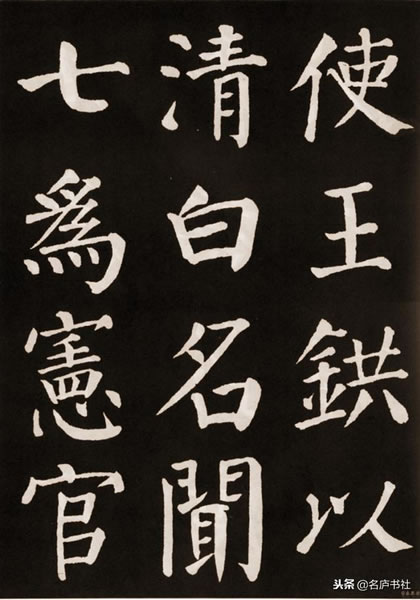 使王鉷以
清白名聞
七爲憲官
头条 @名庐书社